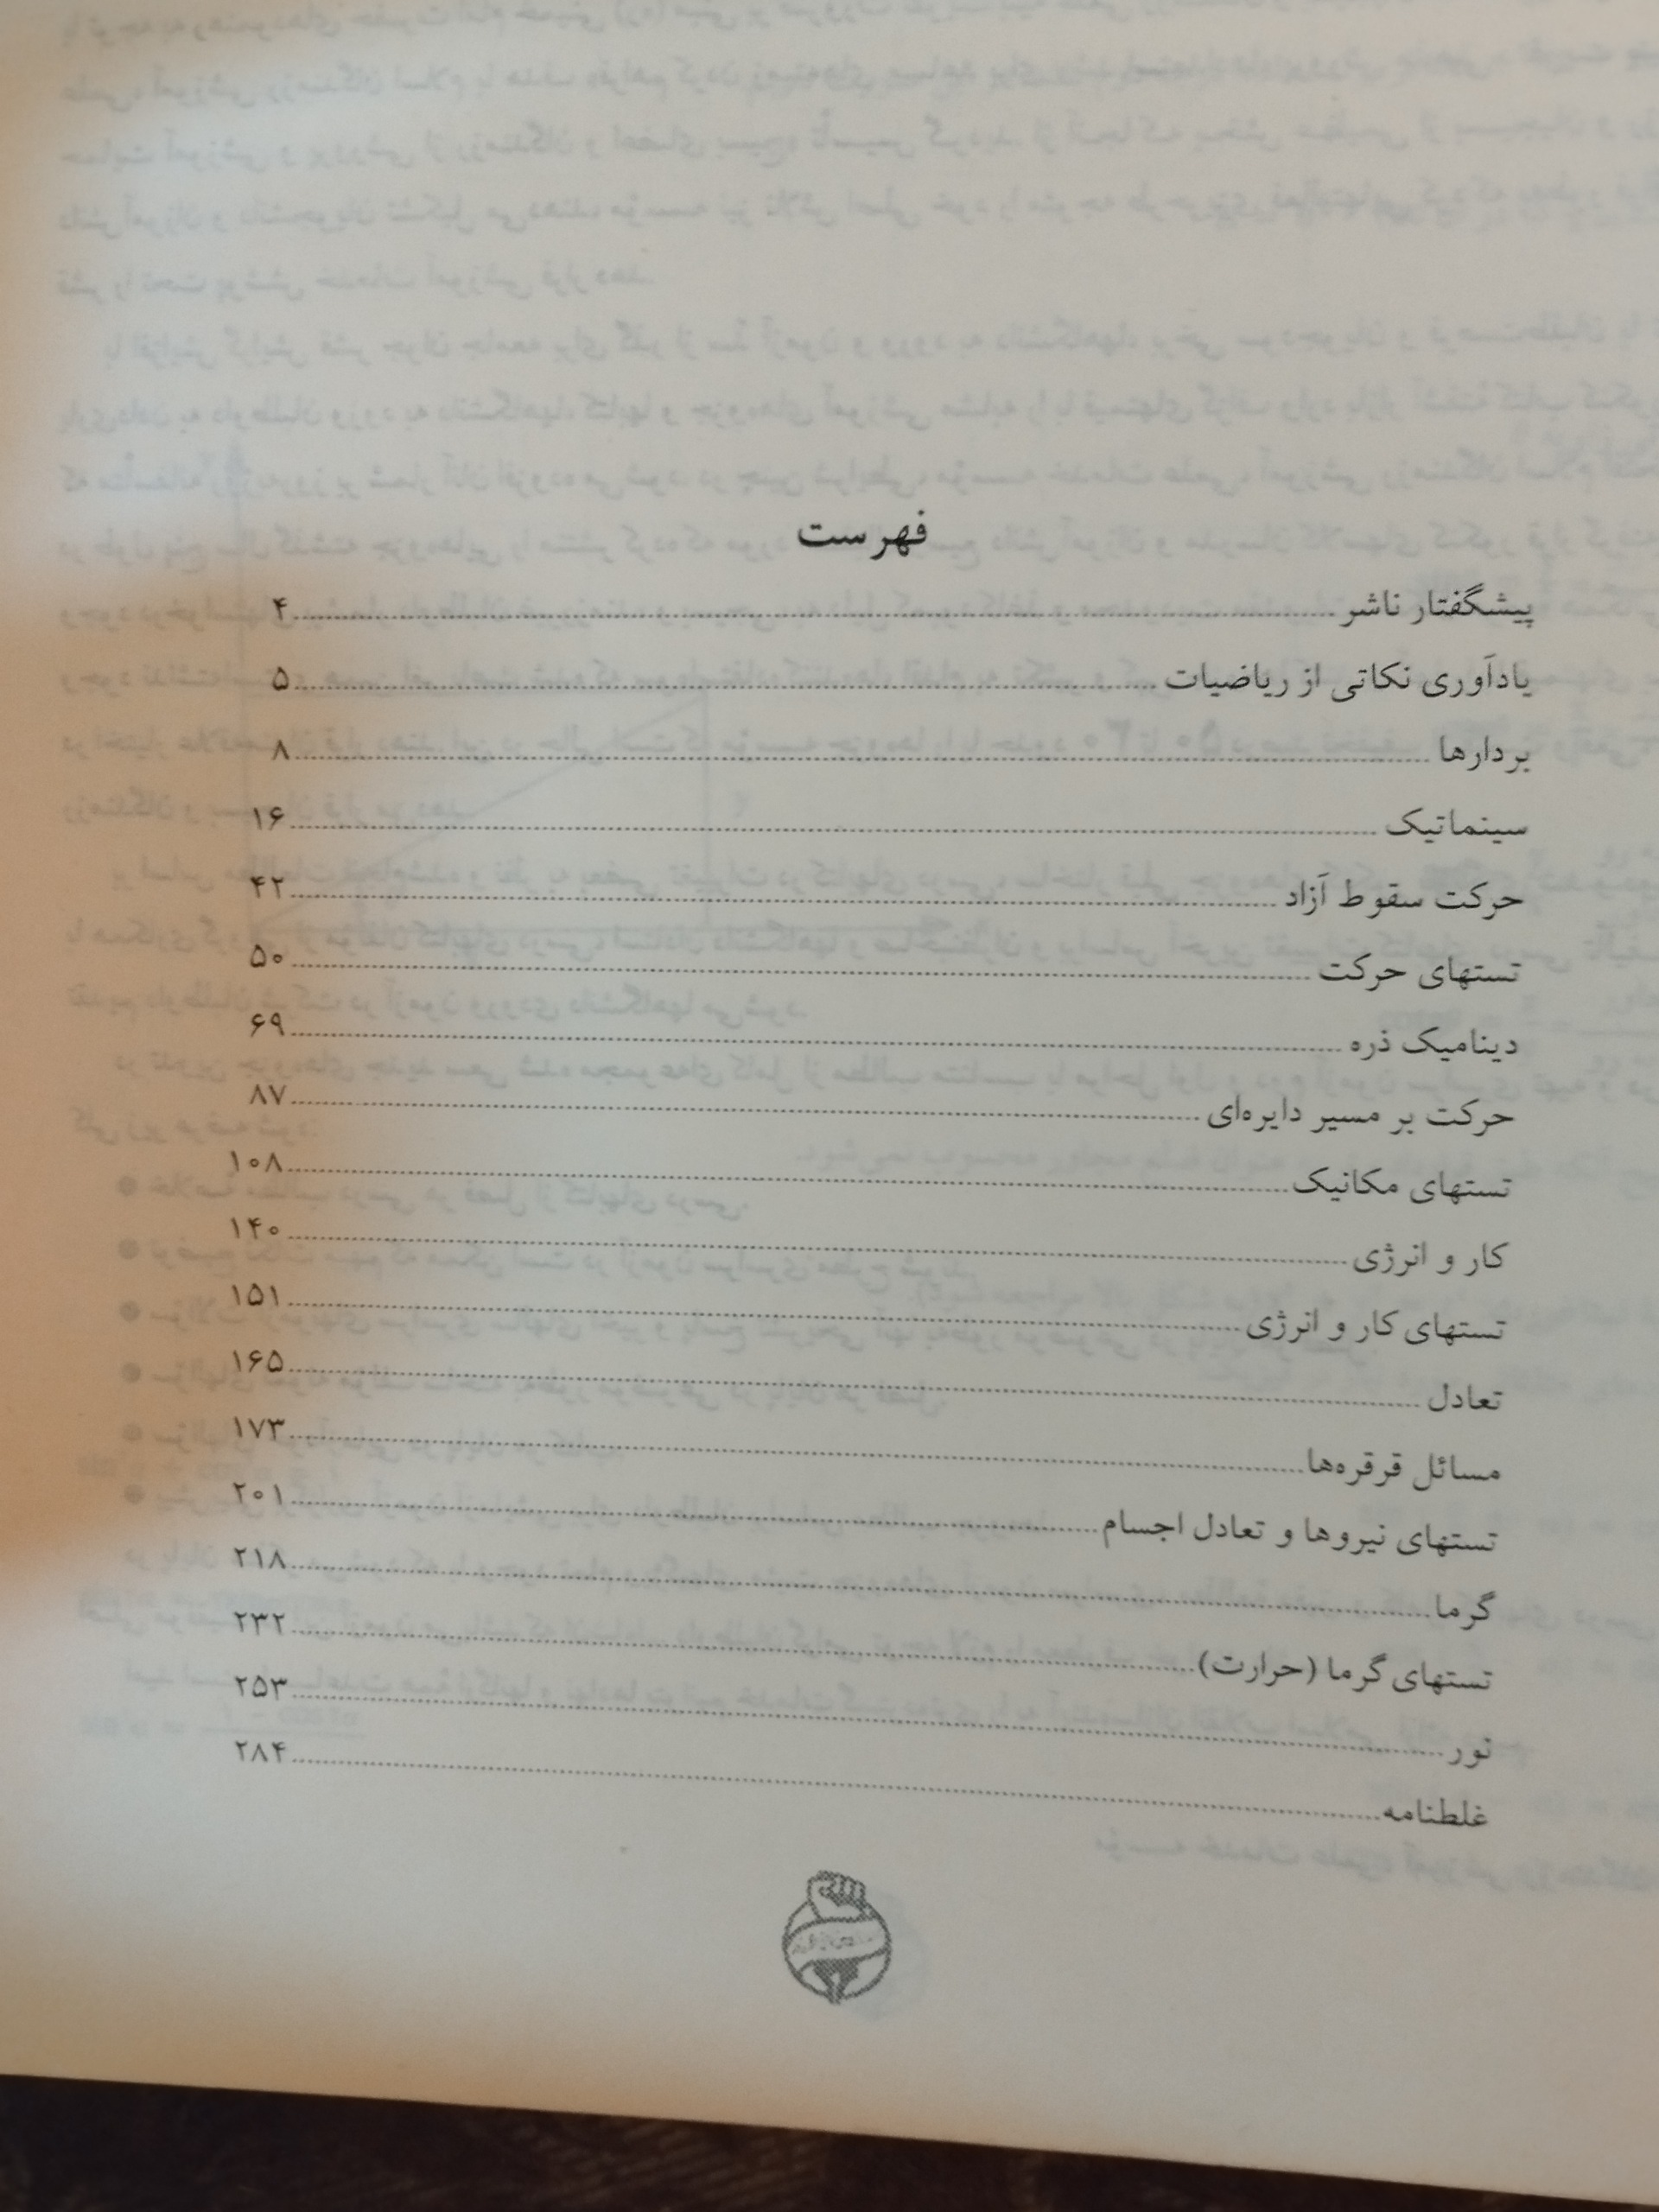 فهرست
پیشگفتار ناشر ........ ۴
یادآوری نکاتی از ریاضیات ........ ۵
بردارها ........ ۸
سینماتیک ........ ۱۶
حرکت سقوط آزاد ........ ۴۲
تستهای حرکت ........ ۵۰
دینامیک ذره ........ ۶۹
حرکت بر مسیر دایره‌ای ........ ۸۷
تستهای مکانیک ........ ۱۰۸
کار و انرژی ........ ۱۴۰
تستهای کار و انرژی ........ ۱۵۱
تعادل ........ ۱۶۵
مسائل قرقره‌ها ........ ۱۷۳
تستهای نیروها و تعادل اجسام ........ ۲۰۱
گرما ........ ۲۱۸
تستهای گرما (حرارت) ........ ۲۳۲
نور ........ ۲۵۳
غلطنامه ........ ۲۸۴